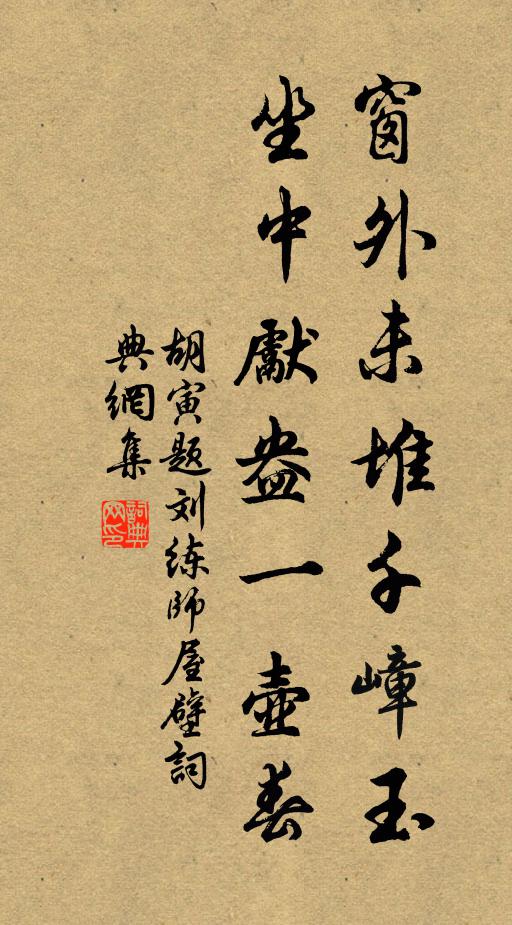 窗外未堆千嶂玉
坐中獻盎一壺春
胡寅题刘练師屋壁詞
典網集
詞典網印